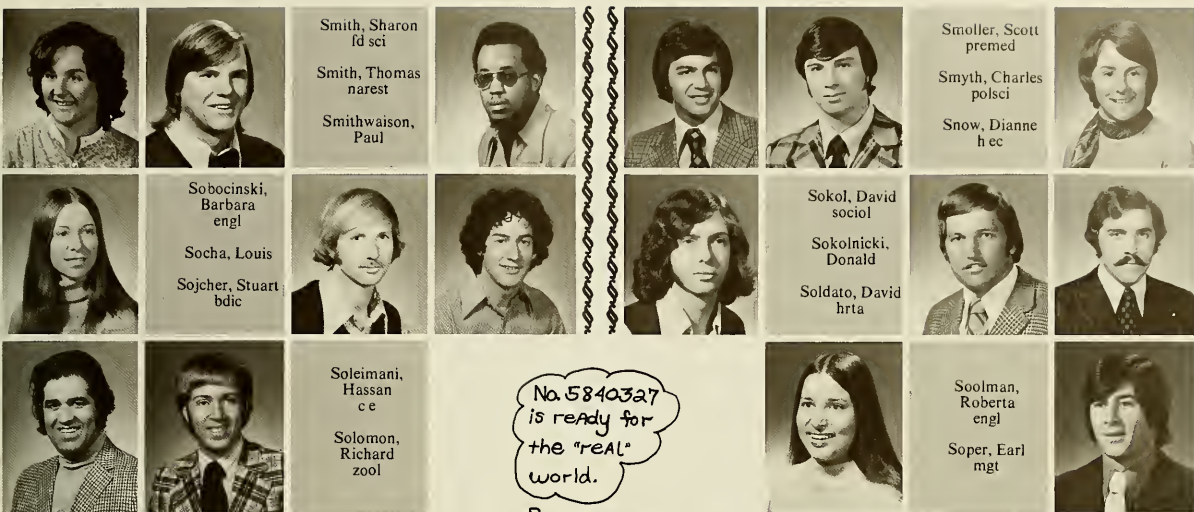 Smith, Sharon
fd sci
Smith, Thomas
narest
Smithwaison,
Paul
Smoller, Scott
premed
Smyth, Charles
polsci
Snow, Dianne
h ec
Sobocinski,
Barbara
engl
Socha, Louis
Sojcher, Stuart
bdic
Sokol, David
sociol
Sokolnicki,
Donald
Soldato, David
hrta
Soleimani,
Hassan
c e
Solomon,
Richard
zool
No. 5840327
is reAdy for
the "reAL"
world.
Soolman,
Roberta
engl
Soper, Earl
mgt